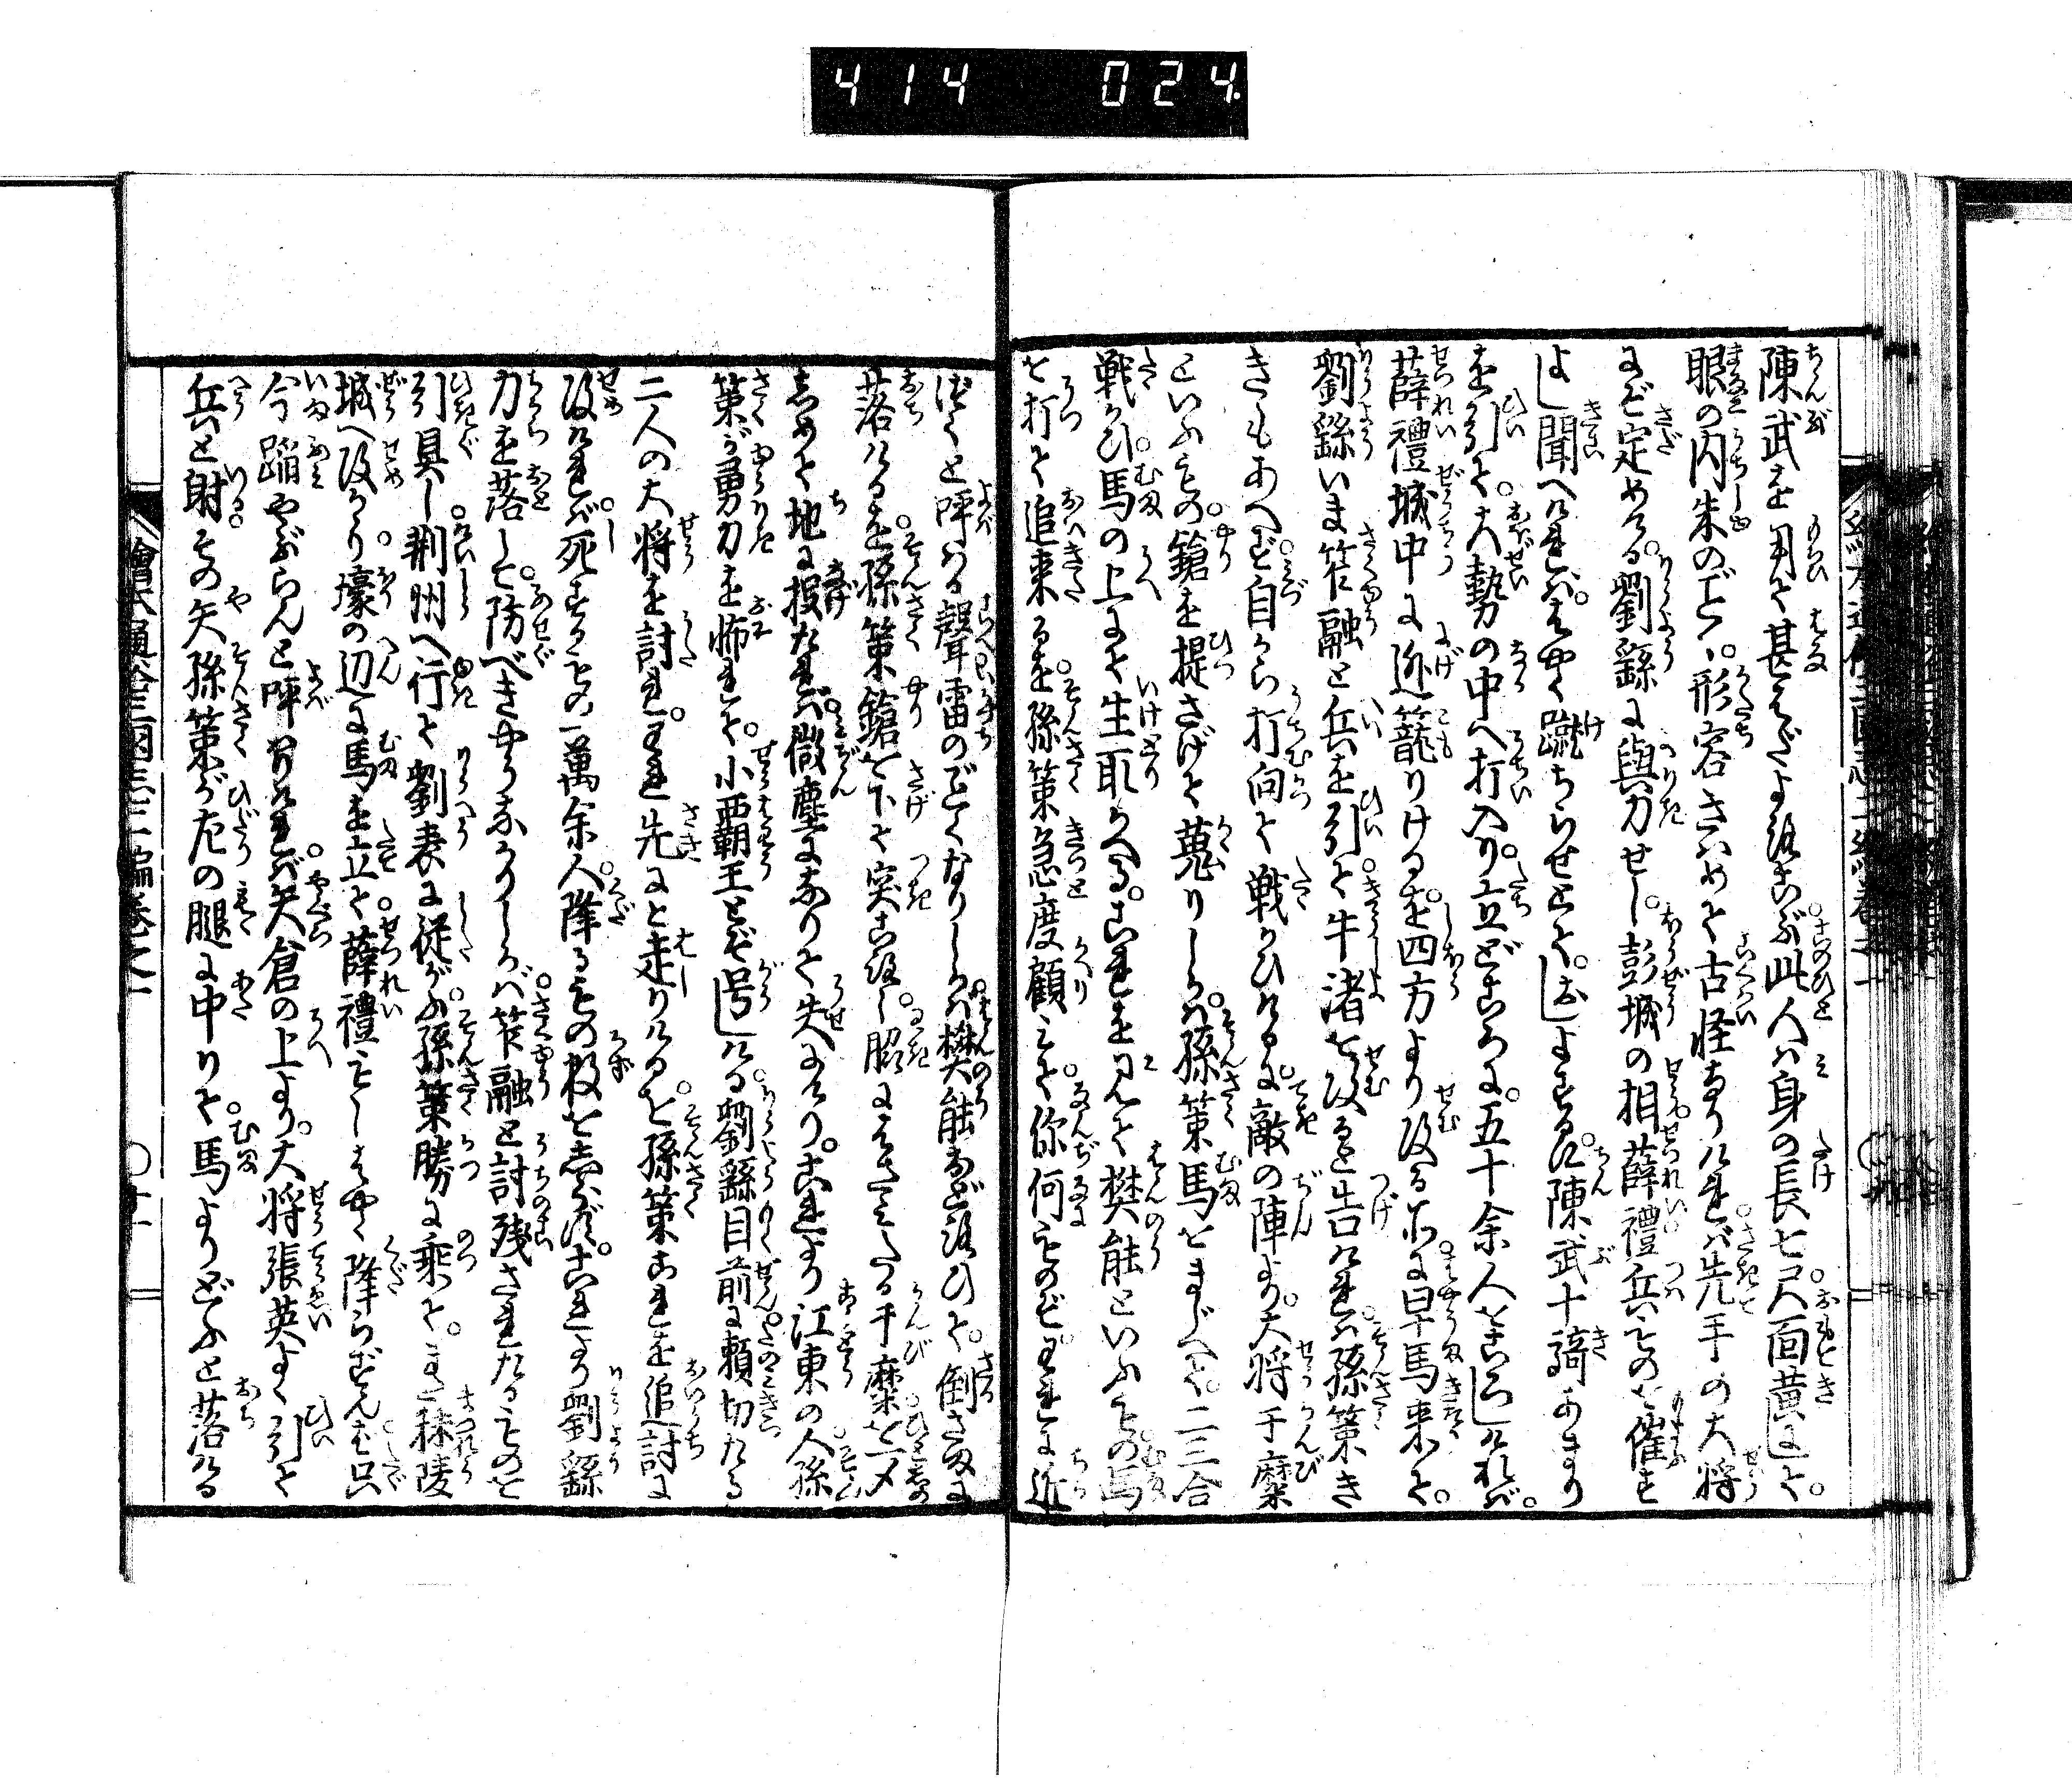 414 024
陳武を用て甚はだよろこぶ此人は身の長七尺面黄にして。
眼の内朱のごとく。形容きはめて古怪なりければ先手の大将
にぞ定めける劉繇に與力せし。彭城の相薛禮兵ものを催を
よし聞へければ。はやく蹴ちらせとて。しよする。陳武十騎あまり
を引て。大勢の中へ打入り。立どころに。五十余人をころしければ。
薛禮城中に迯籠りけるを。四方より攻る所に早馬来て。
劉繇いま笮融と兵を引て牛渚を攻ると告ければ孫策き
きもあへず自から打向て戦ひけるに。敵の陣より。大将于糜
といふもの。鎗を提さげて蒐りしかば。孫策馬をまじへて。二三合
戦ひ。馬の上にて生取かへる。これを見て樊能といふもの馬
を打て追来るを。孫策急度顧みて。你何ものぞわれに近
づくと呼はる聲雷のごとくなりしかば樊能おどろひて。倒さまに
落けるを孫策鎗を下て突ころし。脇にはさみたる于糜を一〆
しめて地に投たれば。微塵になりて失にけり。これより江東の人孫
策が勇力を怖れて。小覇王とぞ号しける。劉繇目前に頼切たる
二人の大将を討れ。われ先にと走りけるを。孫策これを追討に
攻ければ。死するもの一萬余人。降るもの数をしらず。これより劉繇
力を落して。防べきやうなかりしかば。笮融と討残されたるものを
引具し。荊州へ行て劉表に従がふ。孫策勝に乗て。また秣陵
城へ攻かゝり。壕の辺に馬を立て。薛禮もしはやく降らずんば只
今蹈やぶらんと呼りければ。矢倉の上より。大将張英よく引て
兵と射る。その矢孫策が左の腿に中りて。馬よりどふと落ける
繪本通俗三国志二編巻之一